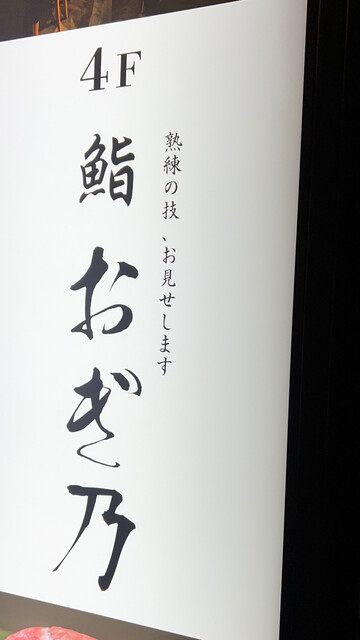 4F
鮨 おぎ乃
熟練の技、お見せします